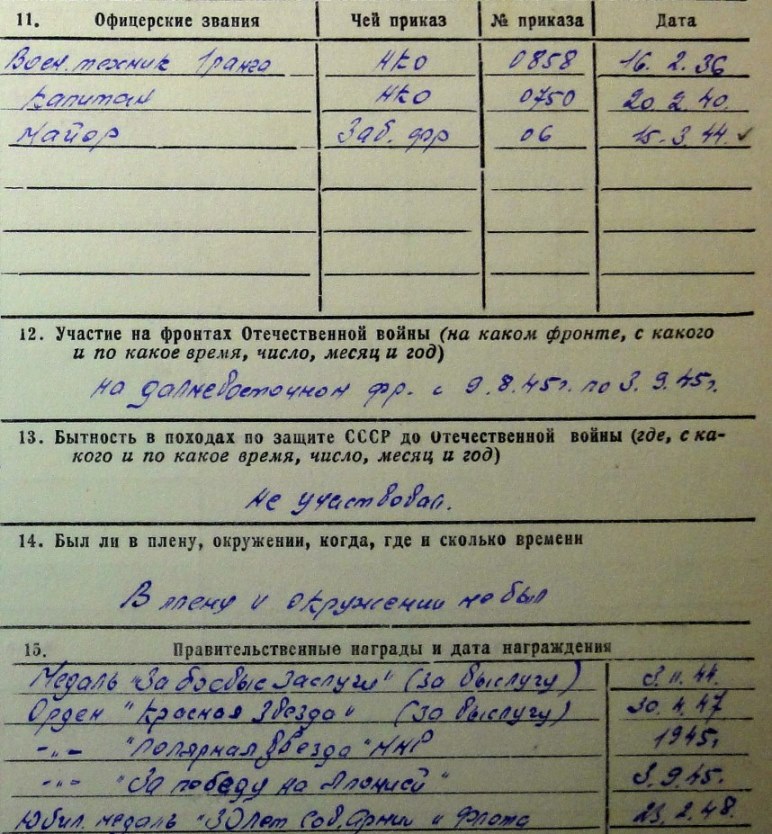 11. Офицерские звания Чей приказ № приказа Дата
Воен. техник 1 ранга НКО 0858 16. 2. 36
Капитан НКО 0750 20. 2. 40.
Майор Заб. фр 06 15. 3. 44.
12. Участие на фронтах Отечественной войны (на каком фронте, с какого
и по какое время, число, месяц и год)
на далневосточном фр. с 9. 8. 45г. по 3. 9. 45г.
13. Бытность в походах по защите СССР до Отечественной войны (где, с ка-
кого и по какое время, число, месяц и год)
не участвовал.
14. Был ли в плену, окружении, когда, где и сколько времени
В плену и окружении не был
15. Правительственные награды и дата награждения
Медаль "За боевые заслуги" (за выслугу) 3. 11. 44.
Орден "Красная Звезда" (за выслугу) 30. 4. 47
-"- "Полярная Звезда" МНР 1945г
-"- "За победу на Японией" 3. 9. 45.
Юбил. медаль "30 лет Сов. Армии и Флота 23. 2. 48.